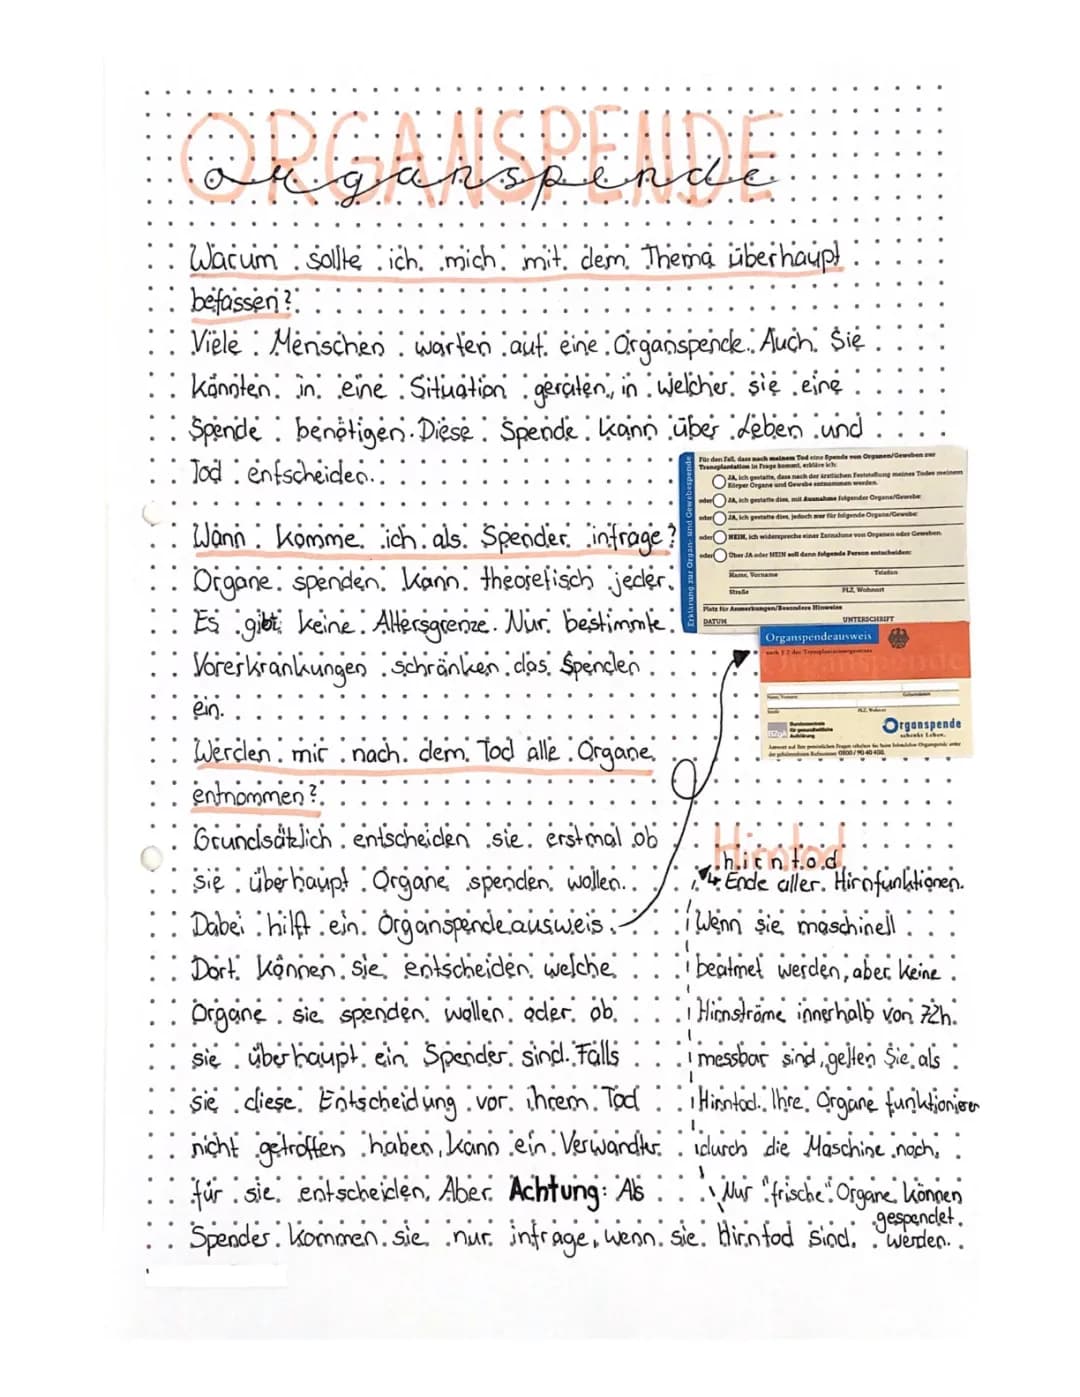 ORGANSPENDE
organspende
Warum sollte ich mich mit dem Thema überhaupt
befassen?
Viele Menschen warten auf eine Organspende. Auch Sie
könnten in eine Situation geraten, in welcher sie eine
Spende benötigen. Diese Spende kann über Leben und
Tod entscheiden.
Wann komme ich als Spender infrage?
Organe spenden kann theoretisch jeder.
Es gibt keine Altersgrenze. Nur bestimmte
Vorerkrankungen schränken das Spenden
ein.
Erklärung zur Organ- und Gewebespende
Für den Fall, dass nach meinem Tod eine Spende von Organen/Geweben zur
Transplantation in Frage kommt, erkläre ich:
JA, ich gestatte, dass nach der ärztlichen Feststellung meines Todes meinem
Körper Organe und Gewebe entnommen werden.
oder JA, ich gestatte dies, mit Ausnahme folgender Organe/Gewebe:
oder JA, ich gestatte dies, jedoch nur für folgende Organe/Gewebe:
oder NEIN, ich widerspreche einer Entnahme von Organen oder Geweben.
oder Über JA oder NEIN soll dann folgende Person entscheiden:
Name, Vorname Telefon
Straße PLZ, Wohnort
Platz für Anmerkungen/Besondere Hinweise
DATUM UNTERSCHRIFT
Organspendeausweis
nach § 2 des Transplantationsgesetzes
Organspende
Name, Vorname Geburtsdatum
Straße PLZ, Wohnort
BZgA
Bundeszentrale
für gesundheitliche
Aufklärung
Organspende
schenkt Leben.
Antwort auf Ihre persönlichen Fragen erhalten Sie beim Infotelefon Organspende unter
der gebührenfreien Rufnummer 0800 / 90 40 400.
Werden mir nach dem Tod alle Organe
entnommen?
Grundsätzlich entscheiden sie erstmal ob
sie überhaupt Organe spenden wollen.
Dabei hilft ein Organspendeausweis.
Dort können sie entscheiden welche
Organe sie spenden wollen oder ob
sie überhaupt ein Spender sind. Falls
sie diese Entscheidung vor ihrem Tod
nicht getroffen haben, kann ein Verwandter
für sie entscheiden. Aber Achtung: Als
Spender kommen sie nur infrage, wenn sie Hirntod sind.
Hirntod
hirntod
↳ Ende aller Hirnfunktionen.
Wenn sie maschinell
beatmet werden, aber keine
Hirnströme innerhalb von 72h
messbar sind, gelten Sie als
Hirntod. Ihre Organe funktionieren
durch die Maschine noch.
Nur "frische" Organe können
gespendet
werden.